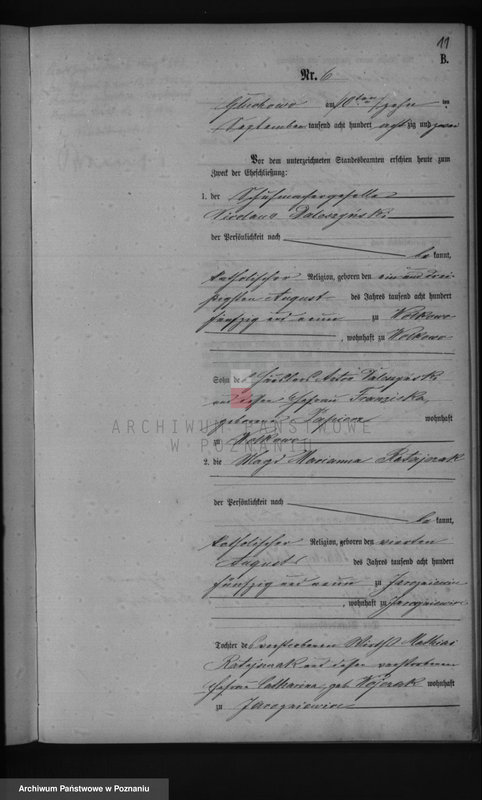 11
B.
Nr. 6
Gluchowo am 10ten zehn ten
September tausend acht hundert acht zig und zwei
Vor dem unterzeichneten Standesbeamten erschien heute zum
Zweck der Eheschließung:
1. der Schuhmachergeselle
Nicolaus
der Persönlichkeit nach
be kannt,
katholischer Religion, geboren den ein und drei
ßigsten August des Jahres tausend acht hundert
fünfzig und neun zu Wolkowo
, wohnhaft zu Wolkowo
Sohn des Anton
und dessen Ehefrau Franziska,
geborene wohnhaft
ARCHIWUM PAŃSTWOWE
W POZNANIU
zu Wolkowo
2. die Magd Marianna Ratajczak
der Persönlichkeit nach
be kannt,
katholischer Religion, geboren den vierten
August des Jahres tausend acht hundert
fünfzig und neun zu Jarogniewice
, wohnhaft zu Jarogniewice
Tochter des verstorbenen Wirths Mathias
Ratajczak und dessen verstorbenen
Ehefrau Catharina, geb. Wojczak wohnhaft
zu Jarogniewice
Archiwum Państwowe w Poznaniu